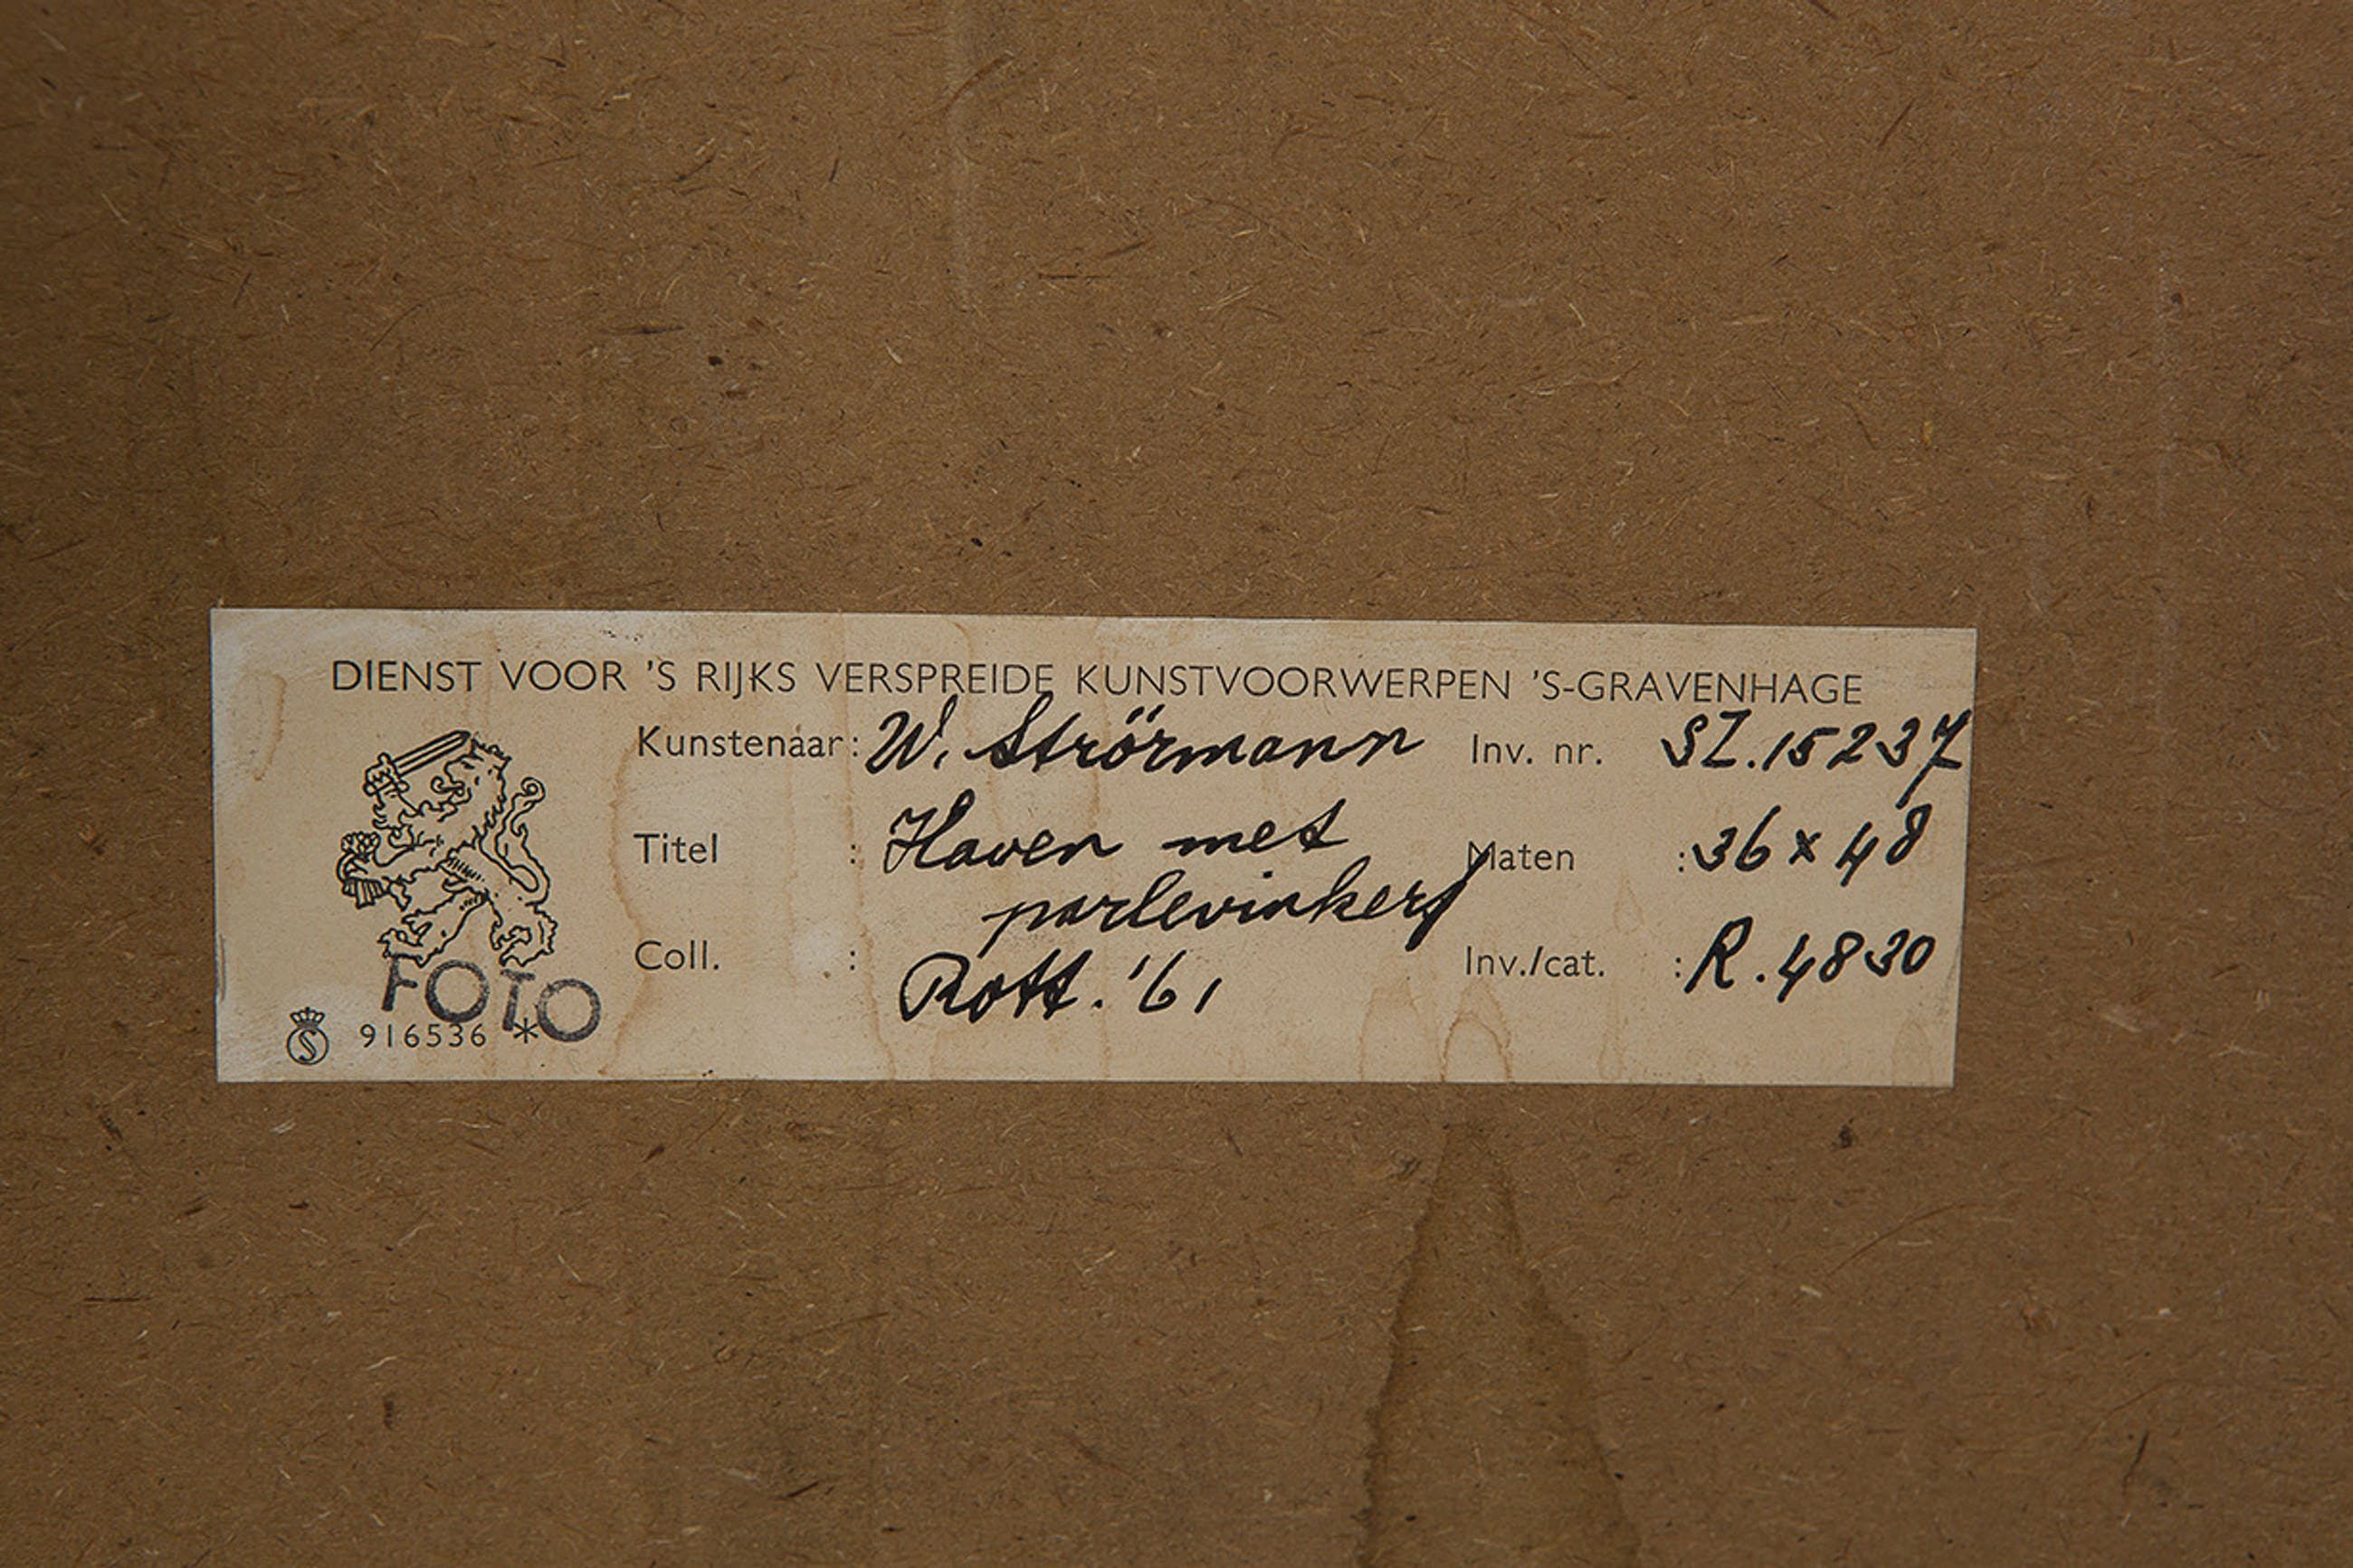 DIENST VOOR 'S RIJKS VERSPREIDE KUNSTVOORWERPEN 'S-GRAVENHAGE
Kunstenaar: W. Strörmann Inv. nr. SZ.15237
Titel : Haven met Maten : 36 x 48
parlevinkers
Coll. : Rott. '61 Inv./cat. : R.4830
FOTO
S 916536 *